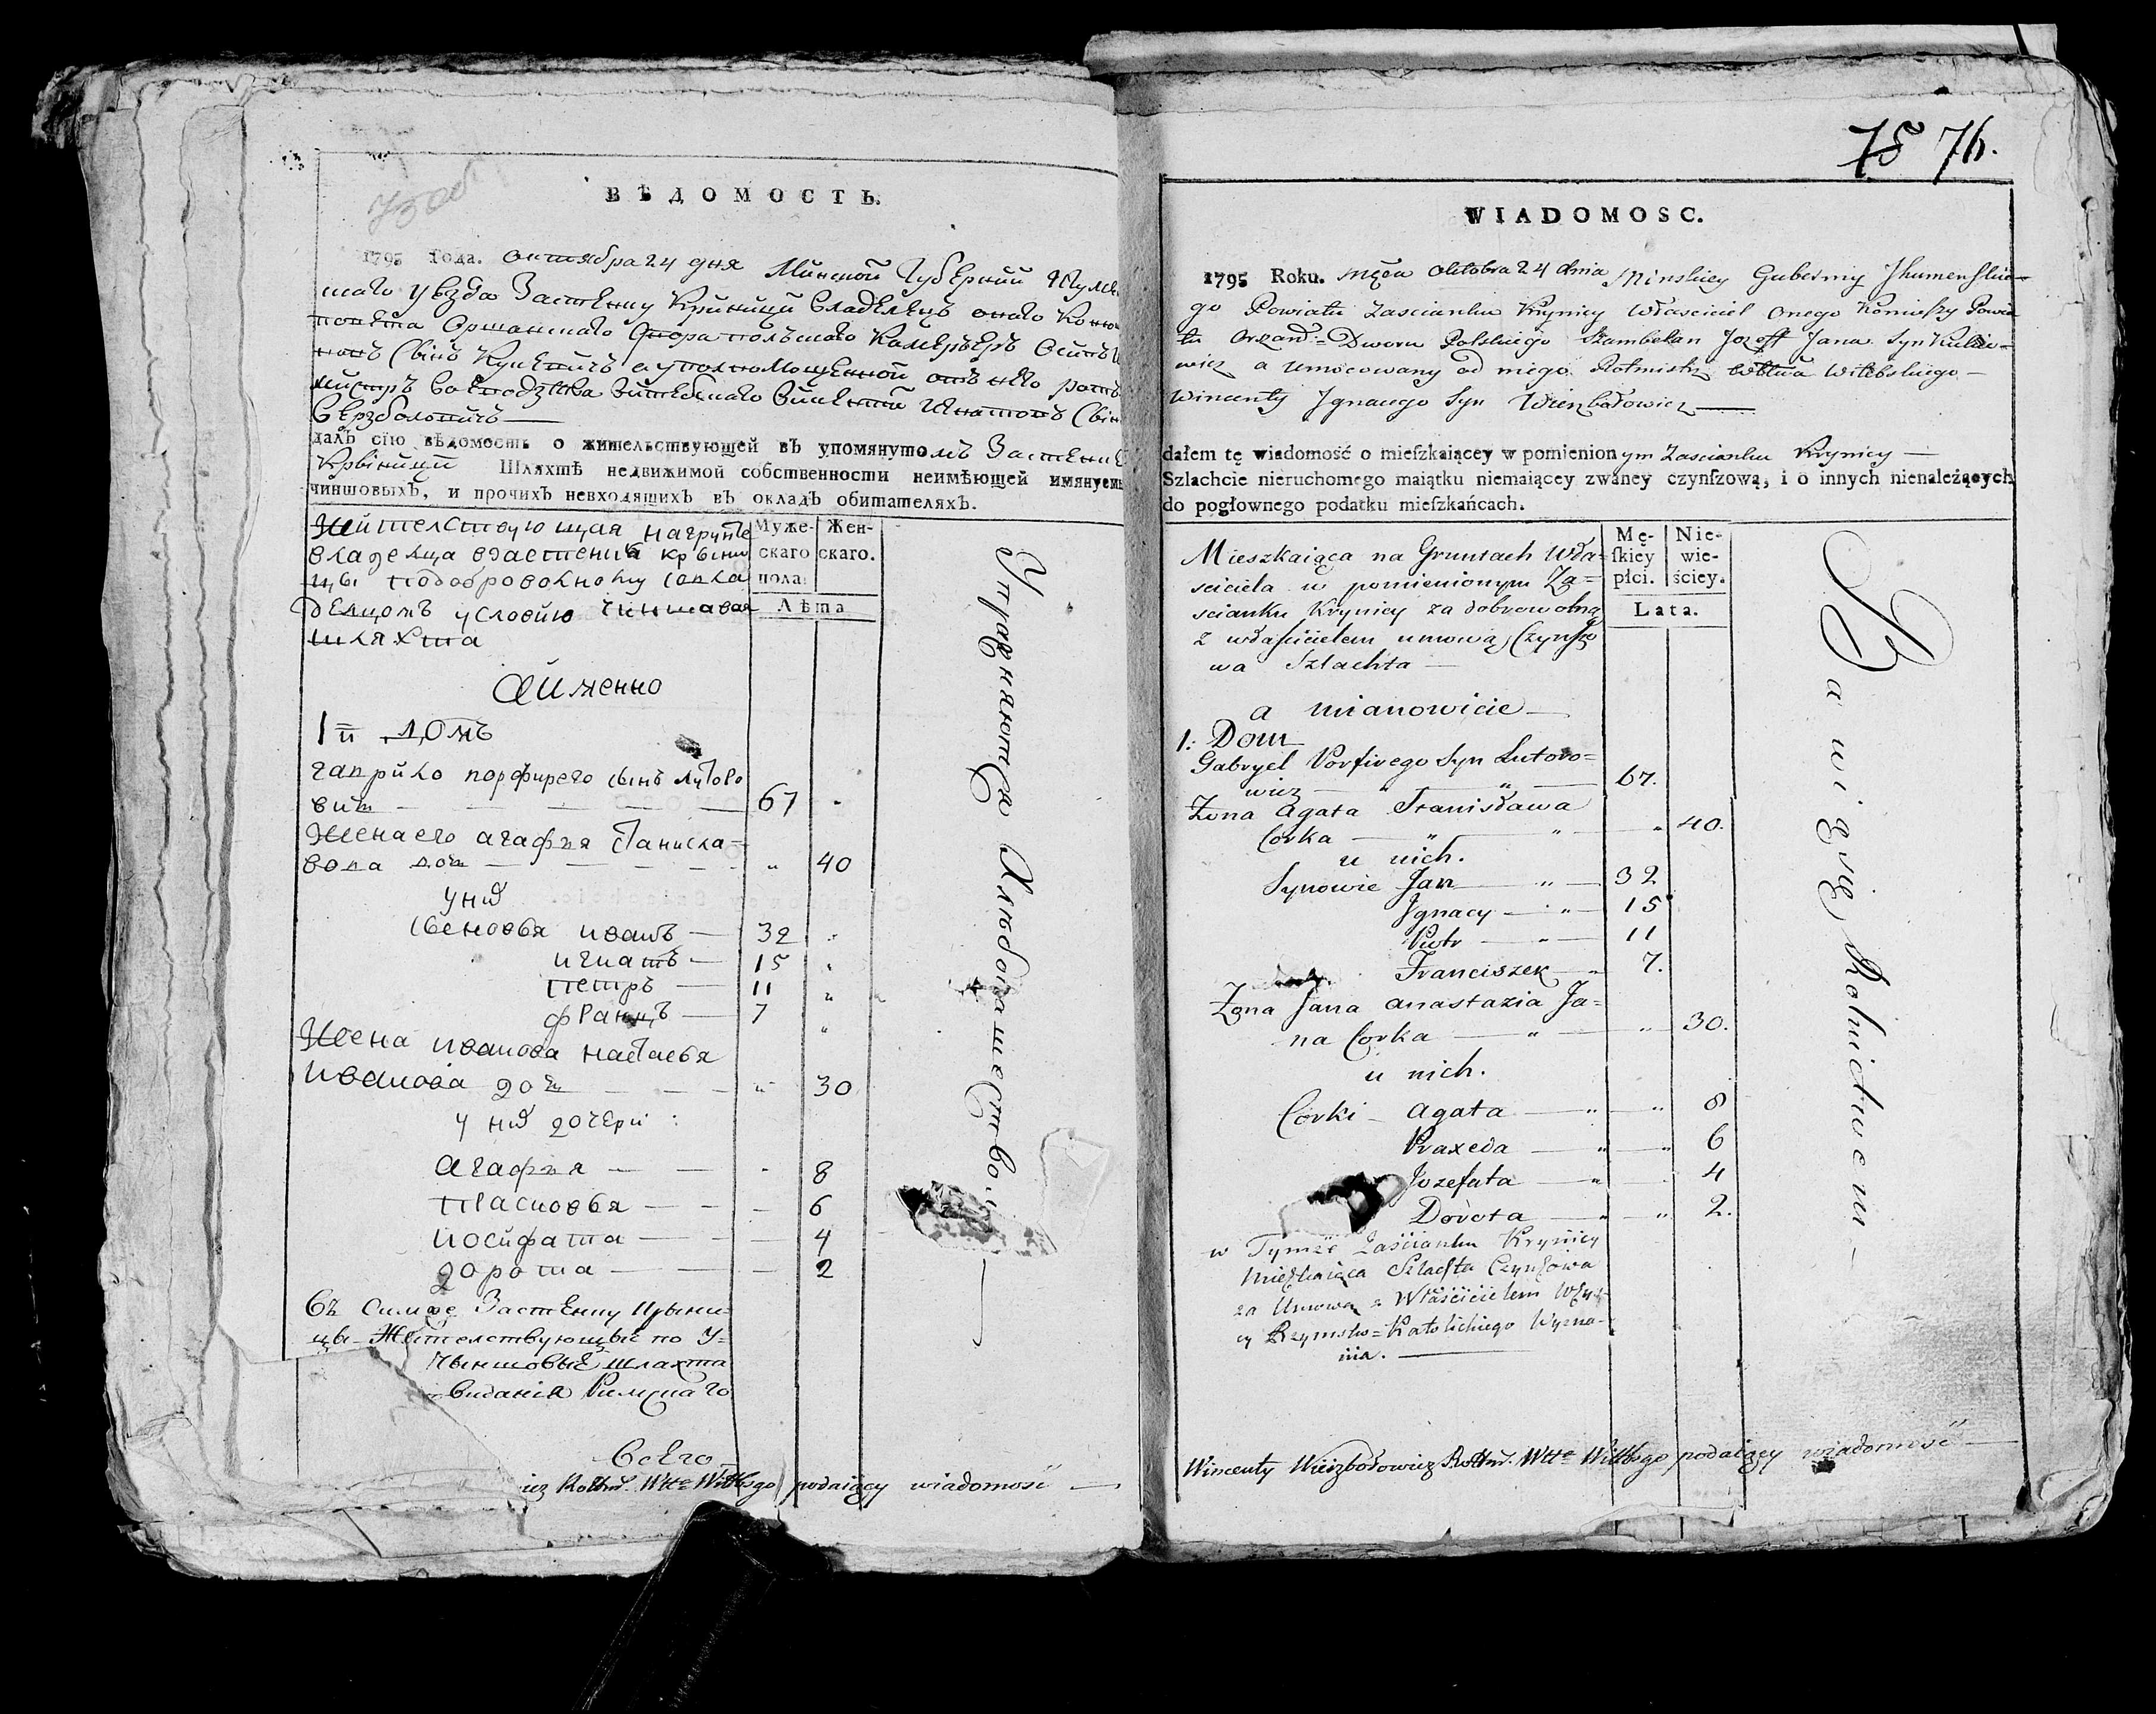 ВѢДОМОСТЬ.
1795 Года. Октября 24 дня Минской Губернии Игуменс
каго уѣзда Застѣнку Криницы Владѣлецъ онаго Коню
повѣта Оршанскаго Двора польскаго Камергеръ Осипъ
Сынъ а уполномоченной отъ него ротъ
мистръ Воеводзтва Витебскаго Викентій Игнатовъ Сын
Верзболовичъ
далъ сію вѣдомость о жительствующей въ упомянутомъ Застѣнке
Крыницы Шляхтѣ недвижимой собственности неимѣющей имянуем
чиншовыхъ, и прочихъ невходящихъ въ окладъ обитателяхъ.
Жителствующая нагрунте
владелца взастенке крыни
цы подоброволному совла
делцомъ условию чиншавая
шляхта
Муже-
скаго
пола.
Жен-
скаго.
Лѣта
Аименно
1й домъ
гаприло порфирего сынъ лутово
вич 67
Жена его агафия станисла-
вова доч 40
у них
сыновья иванъ 32
игнатъ 15
петръ 11
францъ 7
Жена иванова настасья
иванова доч 30
у них дочери:
агафия 8
прасковья 6
иосифата 4
дорота 2
Въ симже Застѣнку Крыни-
цы Жителствующые по у-
чыншовые шляхта
Римскаго
Всего
Упражняются Хлѣбопашеством
icz Rottmr. Wtte Wittbsgo podaiący wiadomość
75 76.
WIADOMOSC.
1795 Roku. Mśca Oktobra 24 dnia Minskiey Gubernij Jhumenskie-
go Powiatu Zascianku Krynicy Właściciel Onego Koniuszy Powia
tu Orszań= Dworu Polskiego Szambelan Jozeff Jana Syn
wicz a Umocowany od niego Rotmistrz Witebskiego
Wincenty Jgnacego Syn Wierzbołowicz
dałem tę wiadomość o mieſzkaiącey w pomienionym Zascianku Krynicy
Szlachcie nieruchomego maiątku niemaiącey zwaney czynſzową, i o innych nienależących
do pogłownego podatku mieſzkańcach.
Mieszkaiąca na Gruntach Wła-
sciciela w pomienionym Za=
scianku Krynicy za dobrowolną
z właſcicielem umową Czynſzo
wa Szlachta
Mę-
ſkiey
płci.
Nie-
wie-
ściey.
Lata.
a mianowicie
1: Dom
Gabryel Porfirego Syn Lutoro=
wicz 67.
Zona Agata Stanisława
Corka 40.
u nich.
Synowie Jan 32
Jgnacy 15
Piotr 11
Franciszek 7.
Zona Jana Anastazia Ja=
na Corka 30.
u nich.
Corki Agata 8
Praxeda 6
Jozefata 4
Dorota 2.
w Tymże Zaścianku Krynicy
Mieszkaiąca Szlachta Czynszowa
za Umową z Właścicielem
Rzymsko=Katolickiego Wyzna-
nia.
Bawi się Rolnictwem
Wincenty Wierzbołowicz Rottmr. Wtte Wittbsgo podaiący wiadomość